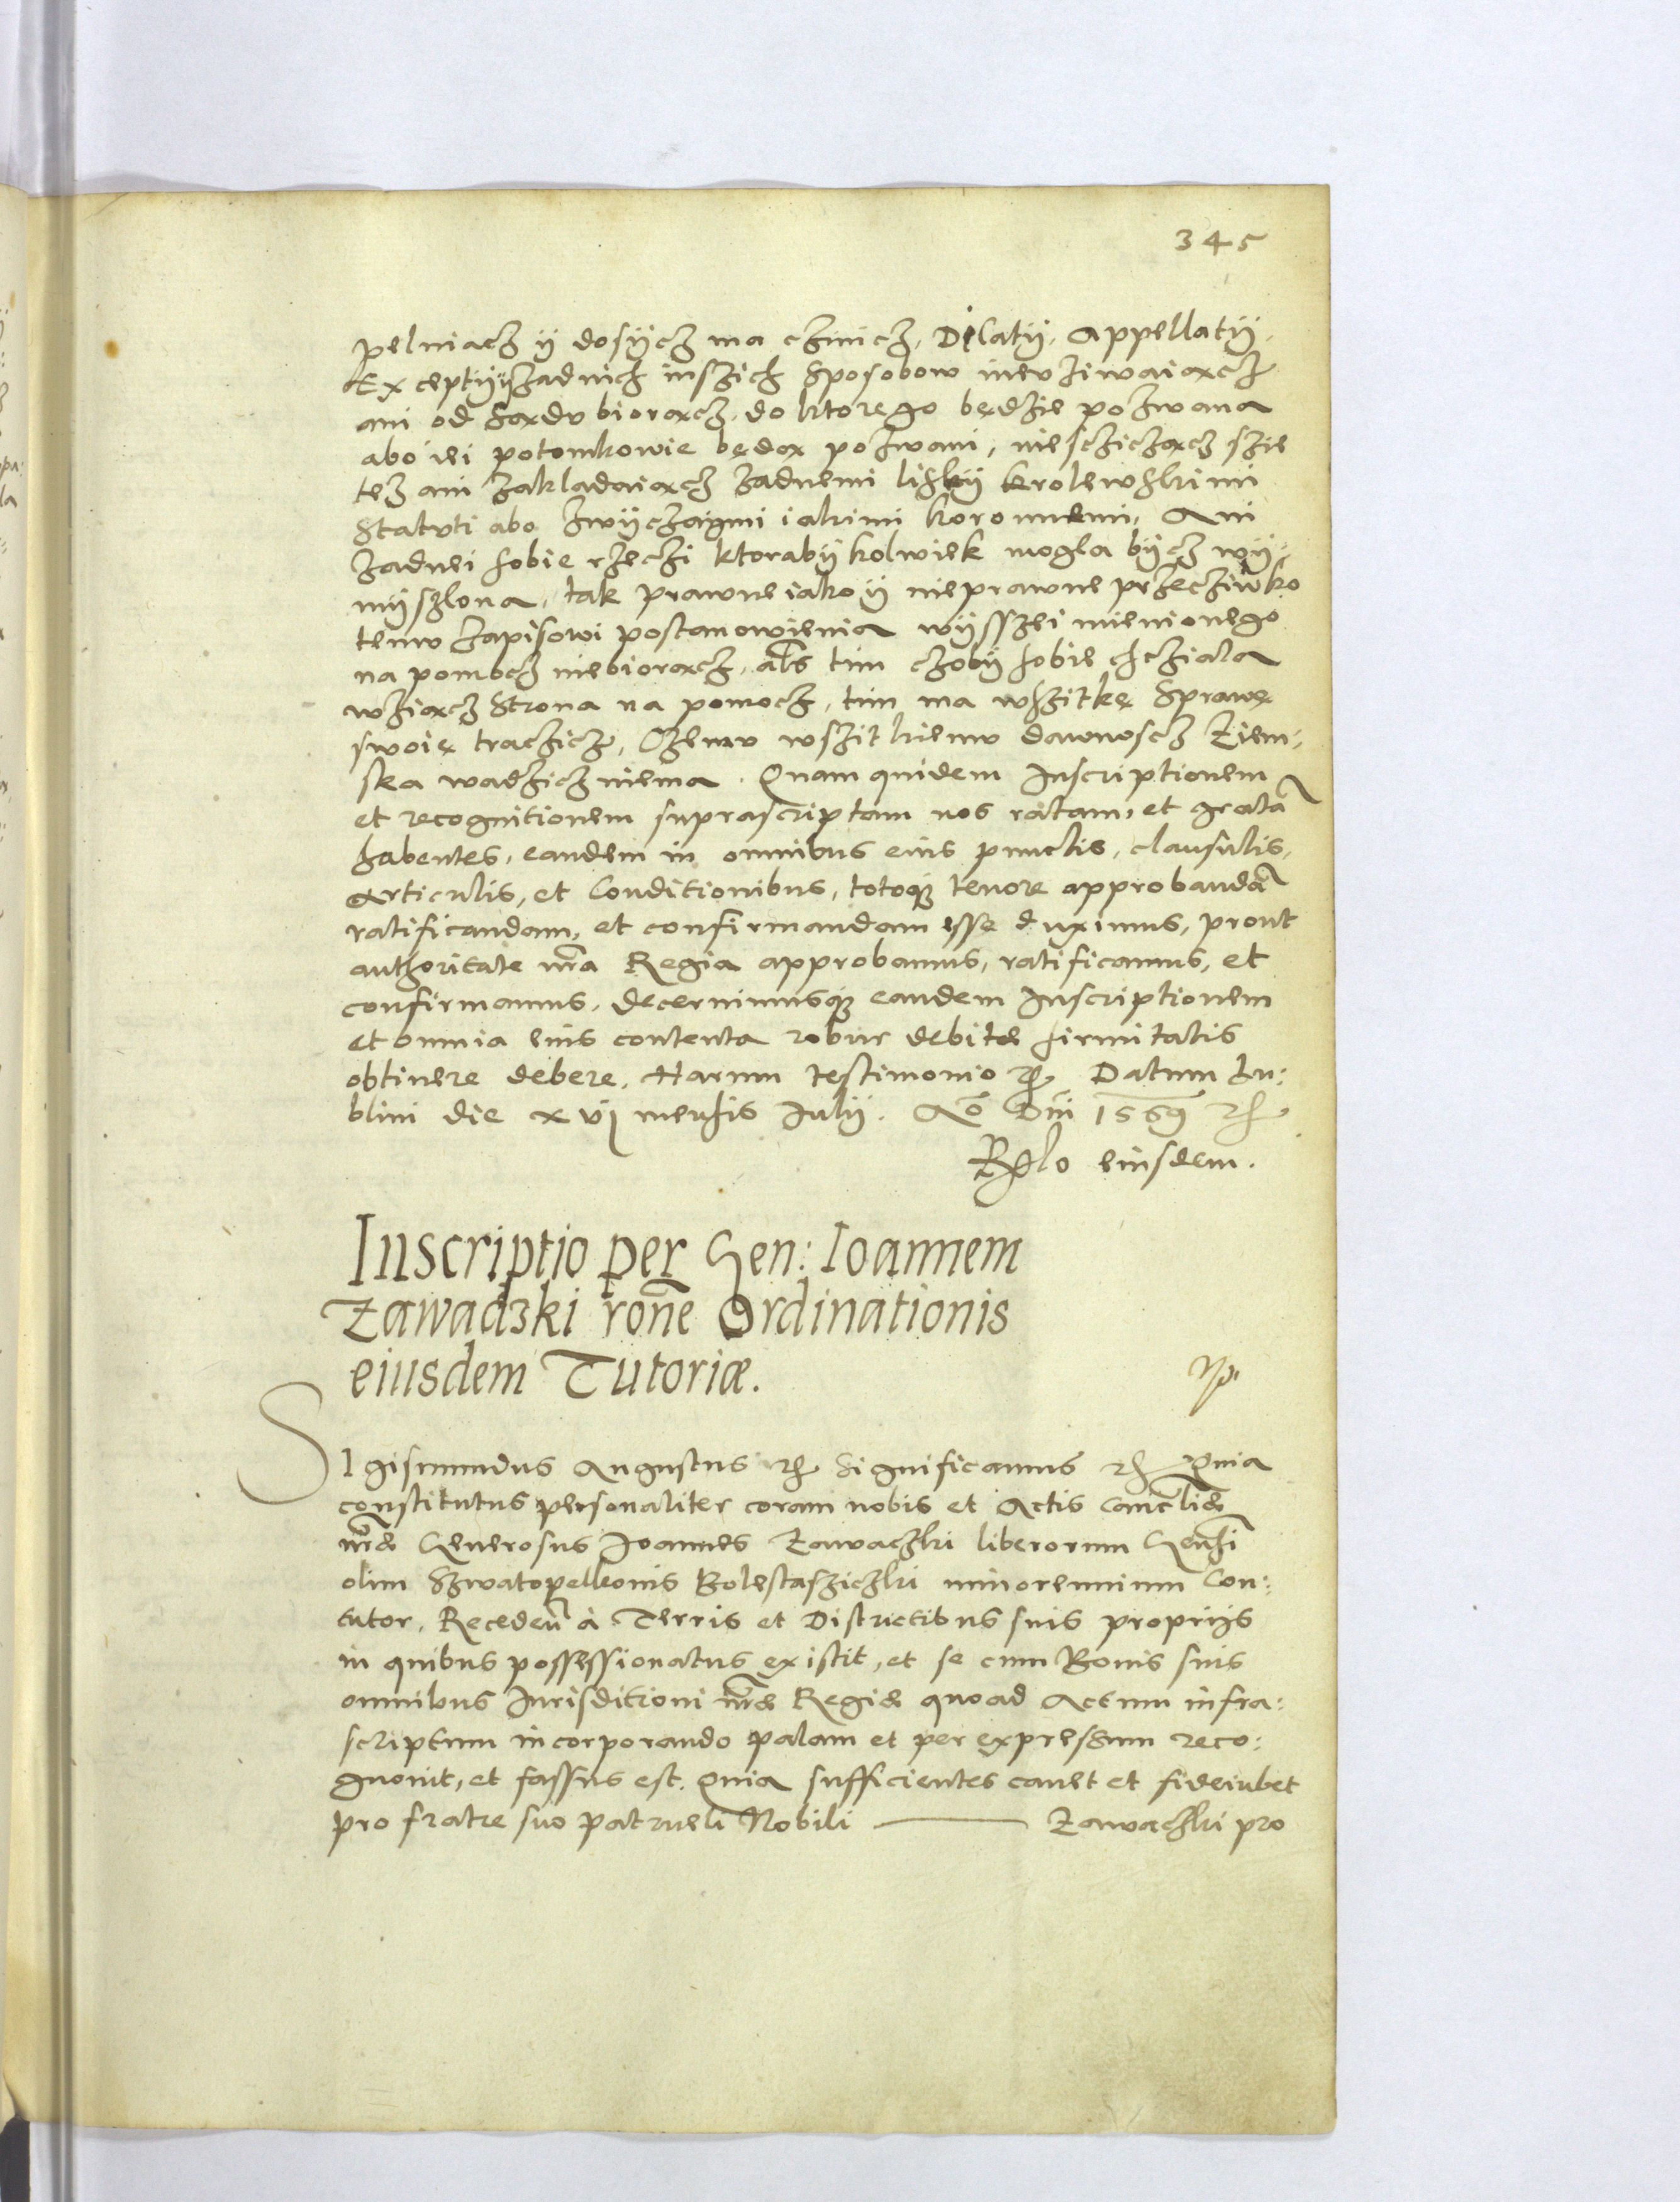 345
pelniacz ÿ dosÿcz ma czinicz, Dilatÿ, Appellatÿ,
Exceptÿ ÿ zadnich inszich Sposobow nievziwaiącz
ani od Sądv biorącz, do ktorego będzie pozwana
abo iei potomkowie będą pozwani, niesczicząncz szie
tez ani zakladaiącz zadnemi listÿ krolewskimi
Statvti abo zwÿczaÿmi iakimi koronnemi, Ani
zadnei sobie rzeczi ktorabÿ kolwiek mogla bÿcz wÿ:
mÿszlona, tak prawne iako ÿ nieprawne przecziwko
temv zapisowi postanowienia wÿsszei mienionego
na pomocz niebiorącz, als tim czobÿ sobie chcziala
wziącz Strona na pomocz, tim ma wszitkę Sprawę
swoię traczicz, Czemv wszitkiemv dawnoscz Ziem:
ska wadzicz niema. Quam quidem Inscriptionem
et recognitionem suprascriptam nos ratam, et gratā
habentes, eandem in omnibus eius punctis, clausulis,
Articulis, et Conditionibus, totoq̃ tenore approbandā
ratificandam, et confirmandam esse duximus, prout
authoritate nr̃a Regia approbamus, ratificamus, et
confirmamus, decernimusq̃ eandem Inscriptionem
et omnia eius contenta robur debitæ firmitatis
obtinere debere, Harum testimonio ꝛc̃ Datum Lu:
blini die xvj mensis Julÿ. Aō Dn̄i 1569 ꝛc̃
Rela eiusdem.
Inscriptio per Gen: Ioannem
Zawadzki rōne Ordinationis
eiusdem Tutoriæ.
Sigismundus Augustus ꝛc̃ Significamus ꝛc̃ Quia
constitutus personaliter coram nobis et Actis Cancl̄iæ
nr̄æ Generosus Joannes Zawaczki liberorum Gen̄si
olim Szwatopelkonis Bolestasziczki minorennium Con:
tutor, Receden̄ à Terris et Districtibus suis proprijs
in quibus possessionatus existit, et se cum Bonis suis
omnibus Jurisditioni nr̄æ Regiæ quoad Actum infra:
scriptum incorporando palam et per expressum reco:
gnouit, et fassus est. Quia sufficientes cauet et fideiubet
pro fratre suo patrueli Nobili ——— Zawaczki pro